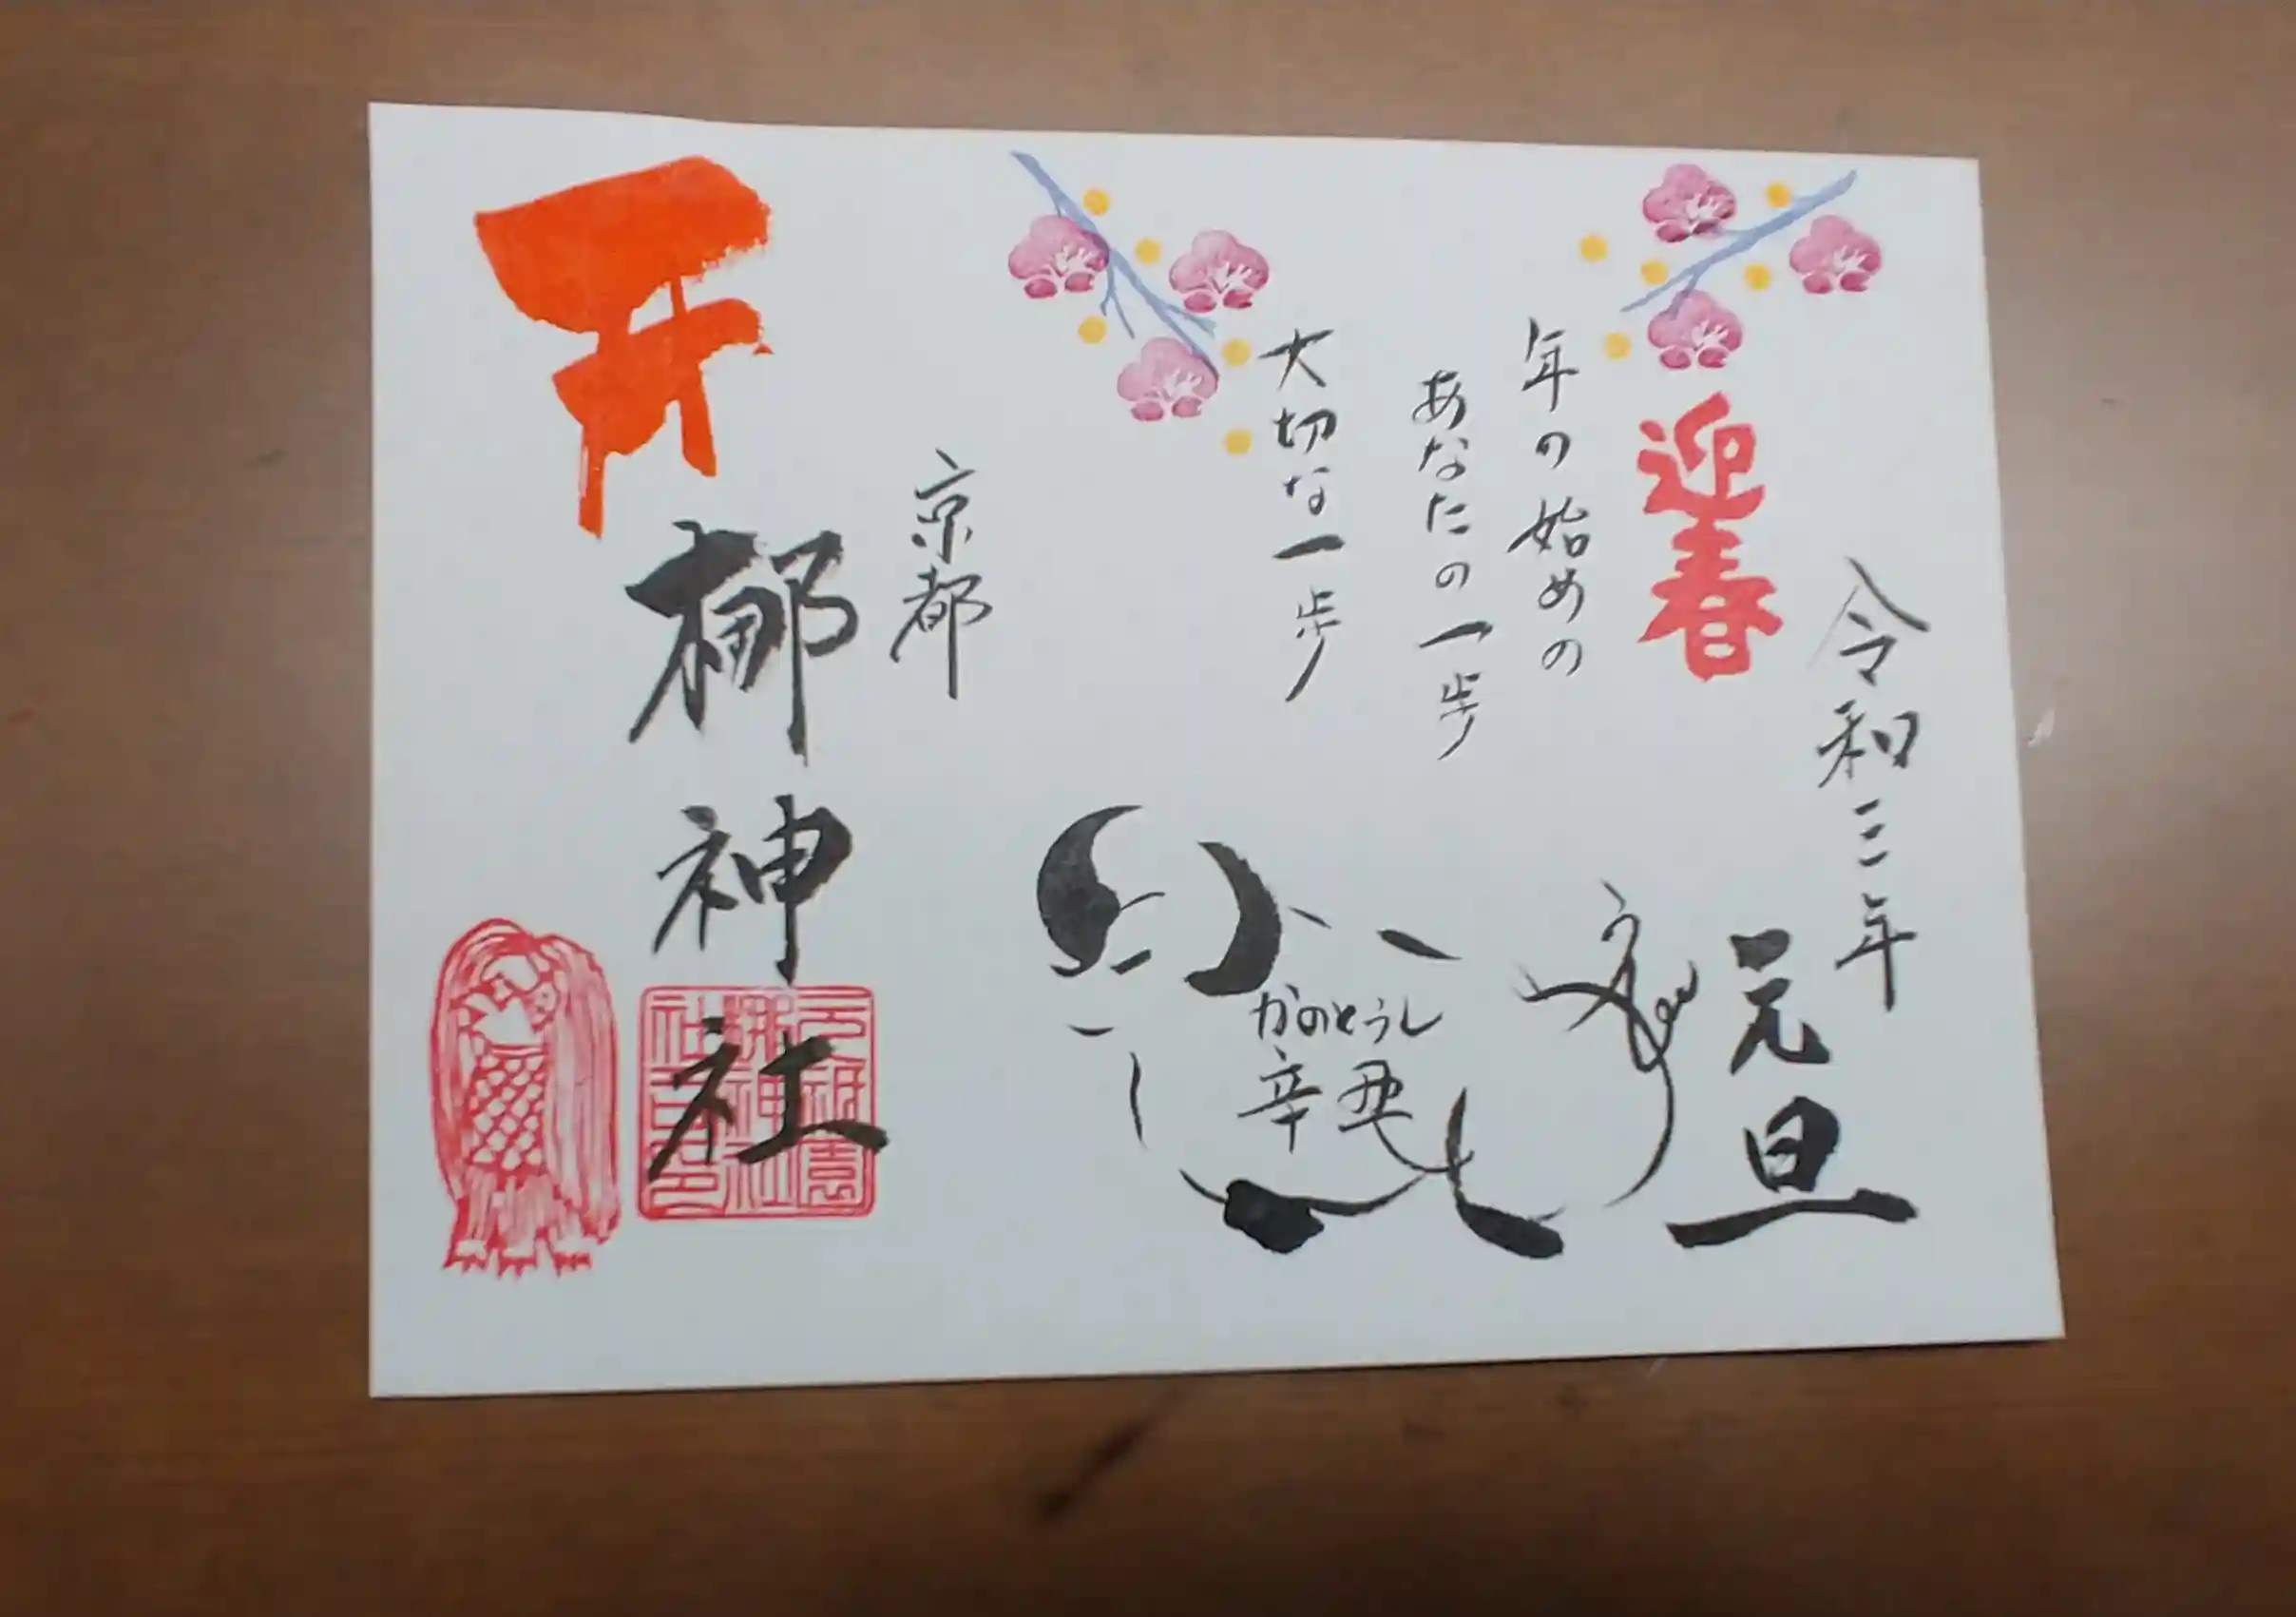 令和三年
元旦
迎春
年の始めの
あなたの一歩
大切な一歩
かのとうし
辛丑
京都
梛神社
元祇園
梛神社
社司之印